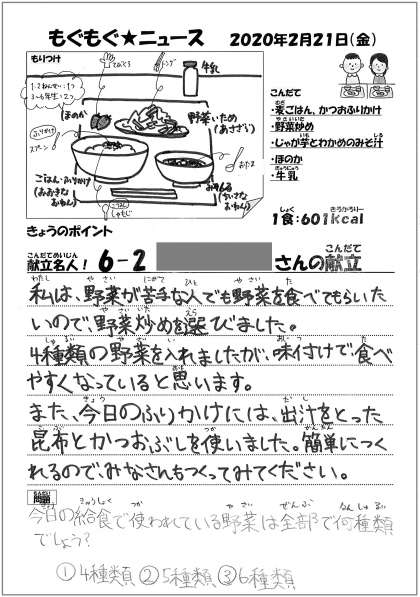 もぐもぐ★ニュース 2020年2月21日(金)
もりつけ
てぶくろ
トング
牛乳
1・2ねんせい:1つ
3〜6年生:2つ
ほのか
野菜いため
(あさざら)
ふりかけ
スプーン
ごはん・ふりかけ
(おおきな
おわん)
しゃもじ
おたま
みそしる
(ちいさな
おわん)
こんだて
・麦ごはん、かつおふりかけ
・野菜炒め
・じゃが芋とわかめのみそ汁
・ほのか
・牛乳
1食:601kcal
きょうのポイント
献立名人! 6-2 さんの献立
私は、野菜が苦手な人でも野菜を食べてもらいた
いので、野菜炒めを選びました。
4種類の野菜を入れましたが、味付けで食べ
やすくなっていると思います。
また、今日のふりかけには、出汁をとった
昆布とかつおぶしを使いました。簡単につく
れるので、みなさんもつくってみてください。
今日の給食で使われている野菜は全部で何種類
でしょう?
①4種類 ②5種類 ③6種類